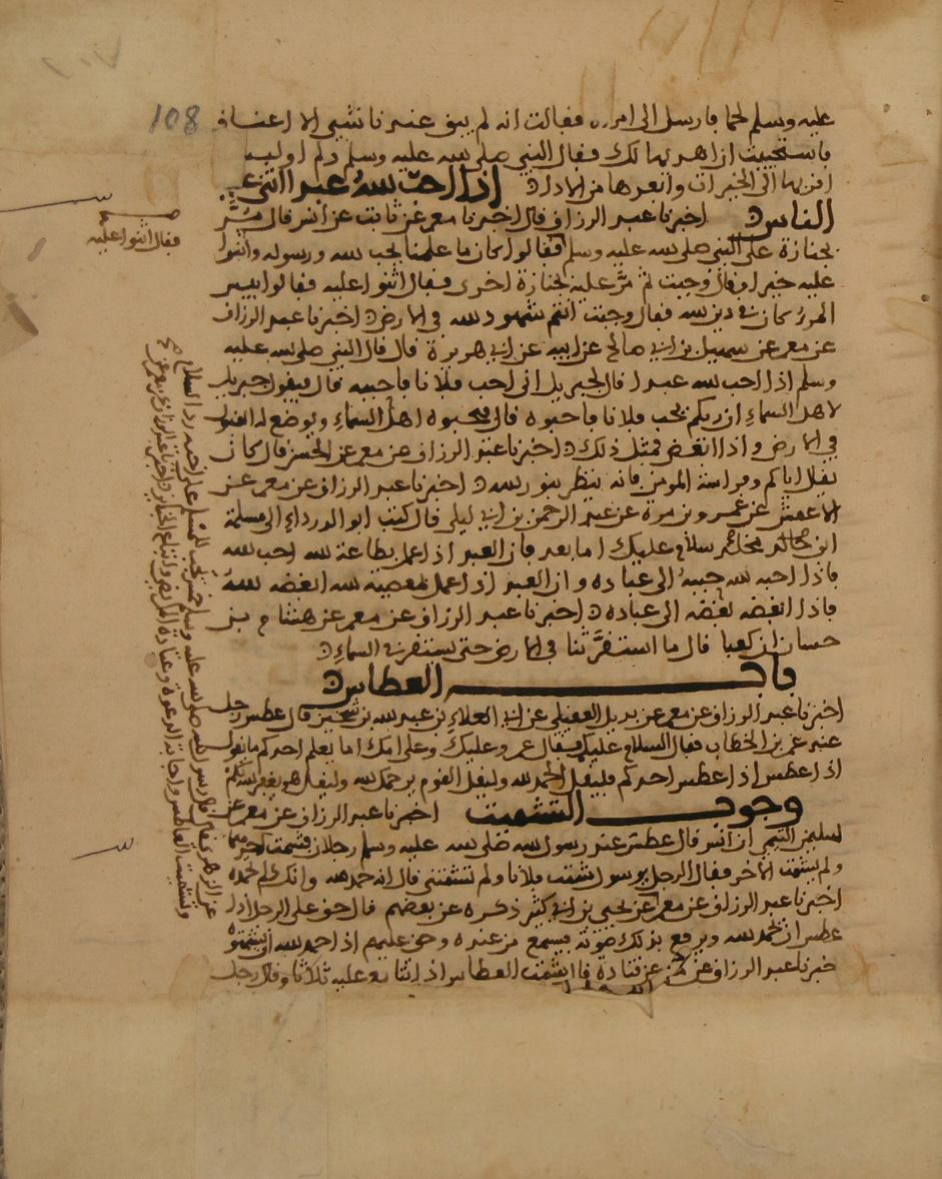 108
عليه وسلم لحما فارسل الى امراة فقالت انه لم يبق عندنا شيء الا اعناق
فاستحييت ان اهديها لك فقال النبي صلى الله عليه وسلم ولم اوليس
اقربها الى الخيرات وابعدها من الاذى اذا احب الله عبدا اثنى عليه
الناس اخبرنا عبد الرزاق قال اخبرنا معمر عن ثابت عن انس قال مر
بجنازة على النبي صلى الله عليه وسلم فقالوا كان ما علمنا يحب الله ورسوله واثنوا
عليه خيرا فقال وجبت ثم مر عليه بجنازة اخرى فقال اثنوا عليه فقالوا بيس
المرء كان في دين الله فقال وجبت انتم شهود الله في الارض اخبرنا عبد الرزاق
عن معمر عن سهيل بن ابي صالح عن ابيه عن ابي هريرة قال قال النبي صلى الله عليه
وسلم اذا احب الله عبدا قال لجبريل اني احب فلانا فاحبه قال فيقول جبريل
لاهل السماء ان ربكم يحب فلانا فاحبوه قال فيحبوه اهل السماء ويوضع له القبول
في الارض واذا ابغض فمثل ذلك اخبرنا عبد الرزاق عن معمر عن الحسن قال كان
يقال اياكم وفراسة المومن فانه ينظر بنور الله اخبرنا عبد الرزاق عن معمر عن
الاعمش عن عمرو بن مرة عن عبد الرحمن بن ابي ليلى قال كتب ابو الدرداء الى مسلمة
ابن مخلد سلام عليك اما بعد فان العبد اذا عمل بطاعة الله احبه الله
فاذا احبه الله حببه الى عباده وان العبد اذا عمل بمعصية الله ابغضه الله
فاذا ابغضه بغضه الى عباده اخبرنا عبد الرزاق عن معمر عن هشام بن
حسان ان كعبا قال ما استقر ثنا في الارض حتى يستقر في السماء
باب العطاس
اخبرنا عبد الرزاق عن معمر عن بديل العقيلي عن ابي العلاء بن عبد الله بن شخير قال عطس رجل
عند عمر بن الخطاب فقال السلام عليك فقال عمر وعليك وعلى امك اما يعلم احدكم ما يقول
اذا عطس اذا عطس احدكم فليقل الحمد لله وليقل القوم يرحمك الله وليقل هو يغفر الله لكم
وجوب التشميت اخبرنا عبد الرزاق عن معمر عن
سليمن التيمي ان انس قال عطس عند رسول الله صلى الله عليه وسلم رجلان فشمت احدهما
ولم يشمت الاخر فقال الرجل يرسول الله شمت فلانا ولم تشمتني قال انه حمد الله وانك لم تحمده
اخبرنا عبد الرزاق عن معمر عن يحيى بن ابي كثير ذكره عن بعضهم قال حق على الرجل اذا
عطس ان يحمد الله ويرفع بذلك صوته يسمع من عنده وحق عليهم اذا حمد الله ان يشمتوه
خبرنا عبد الرزاق عن معمر عن قتادة قال يشمت العطاس اذا تتابع عليه ثلاثا وقال رجل
فقال اثنوا عليه